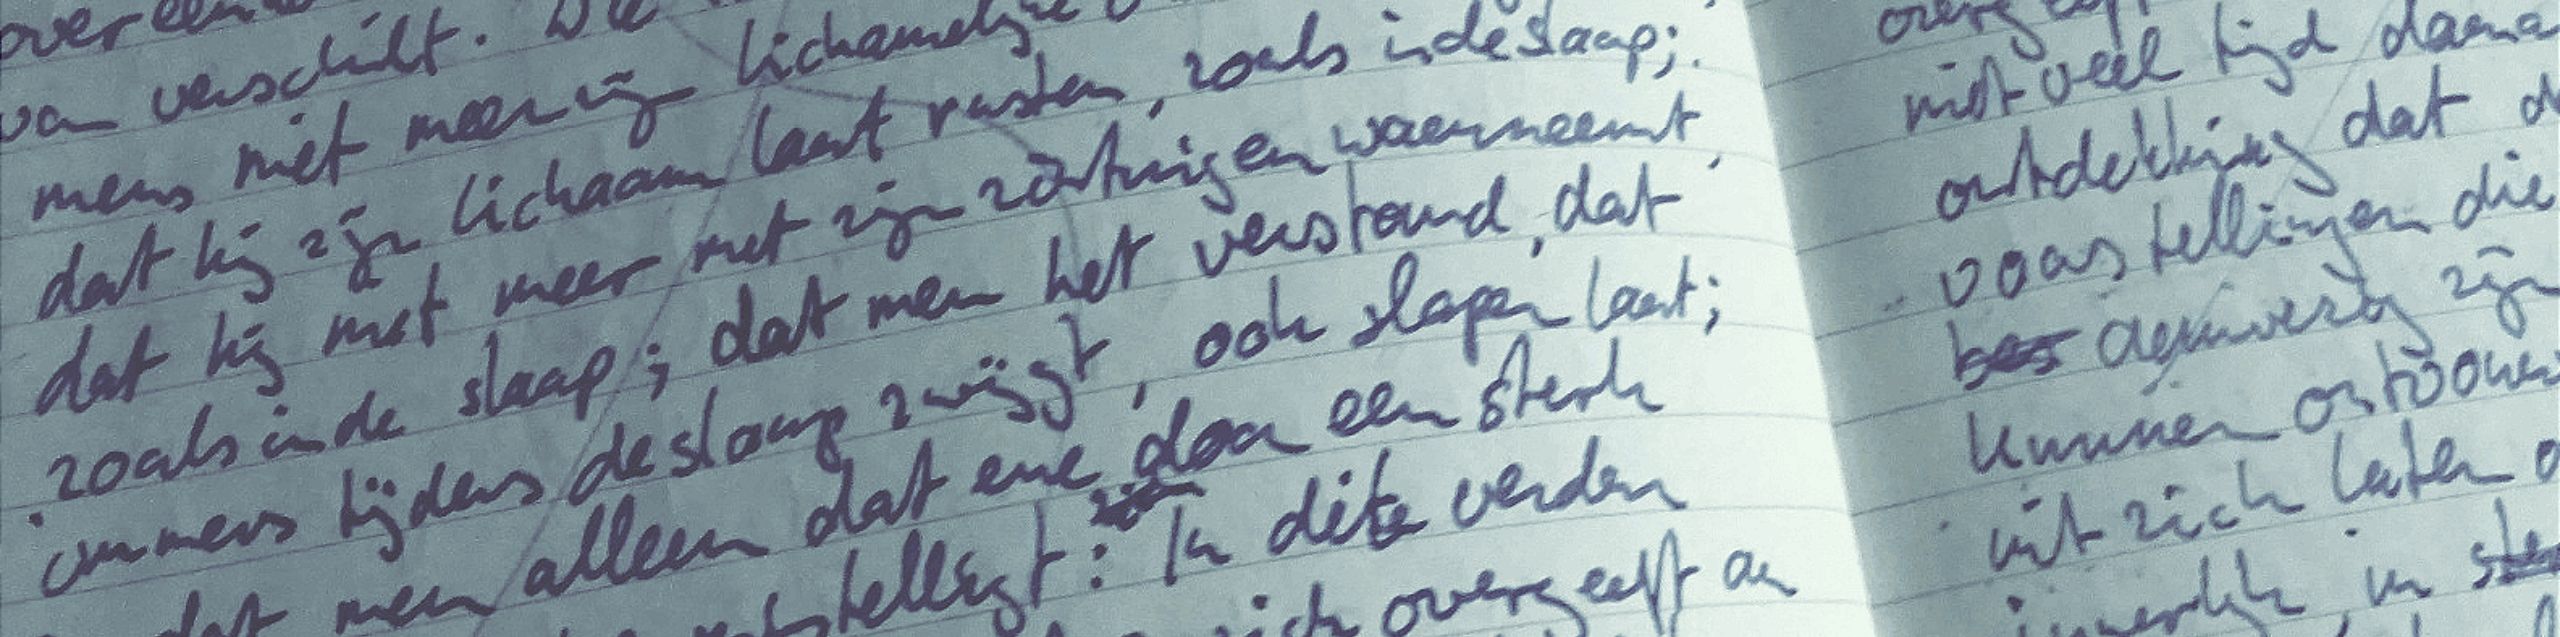 van verschilt. Die
mens niet meer zijn lichamelijke
dat hij zijn lichaam laat rusten, zoals in de slaap;
dat hij niet meer met zijn zintuigen waarneemt,
zoals in de slaap; dat men het verstand, dat
immers tijdens de slaap zwijgt, ook slapen laat;
dat men alleen dat ene door een sterk
: In dit verden
zich overgeeft aan
niet veel tijd daarna
ontdekking dat
voorstellingen die
aanwezig zijn
kunnen
uit zich laten
innerlijk, in